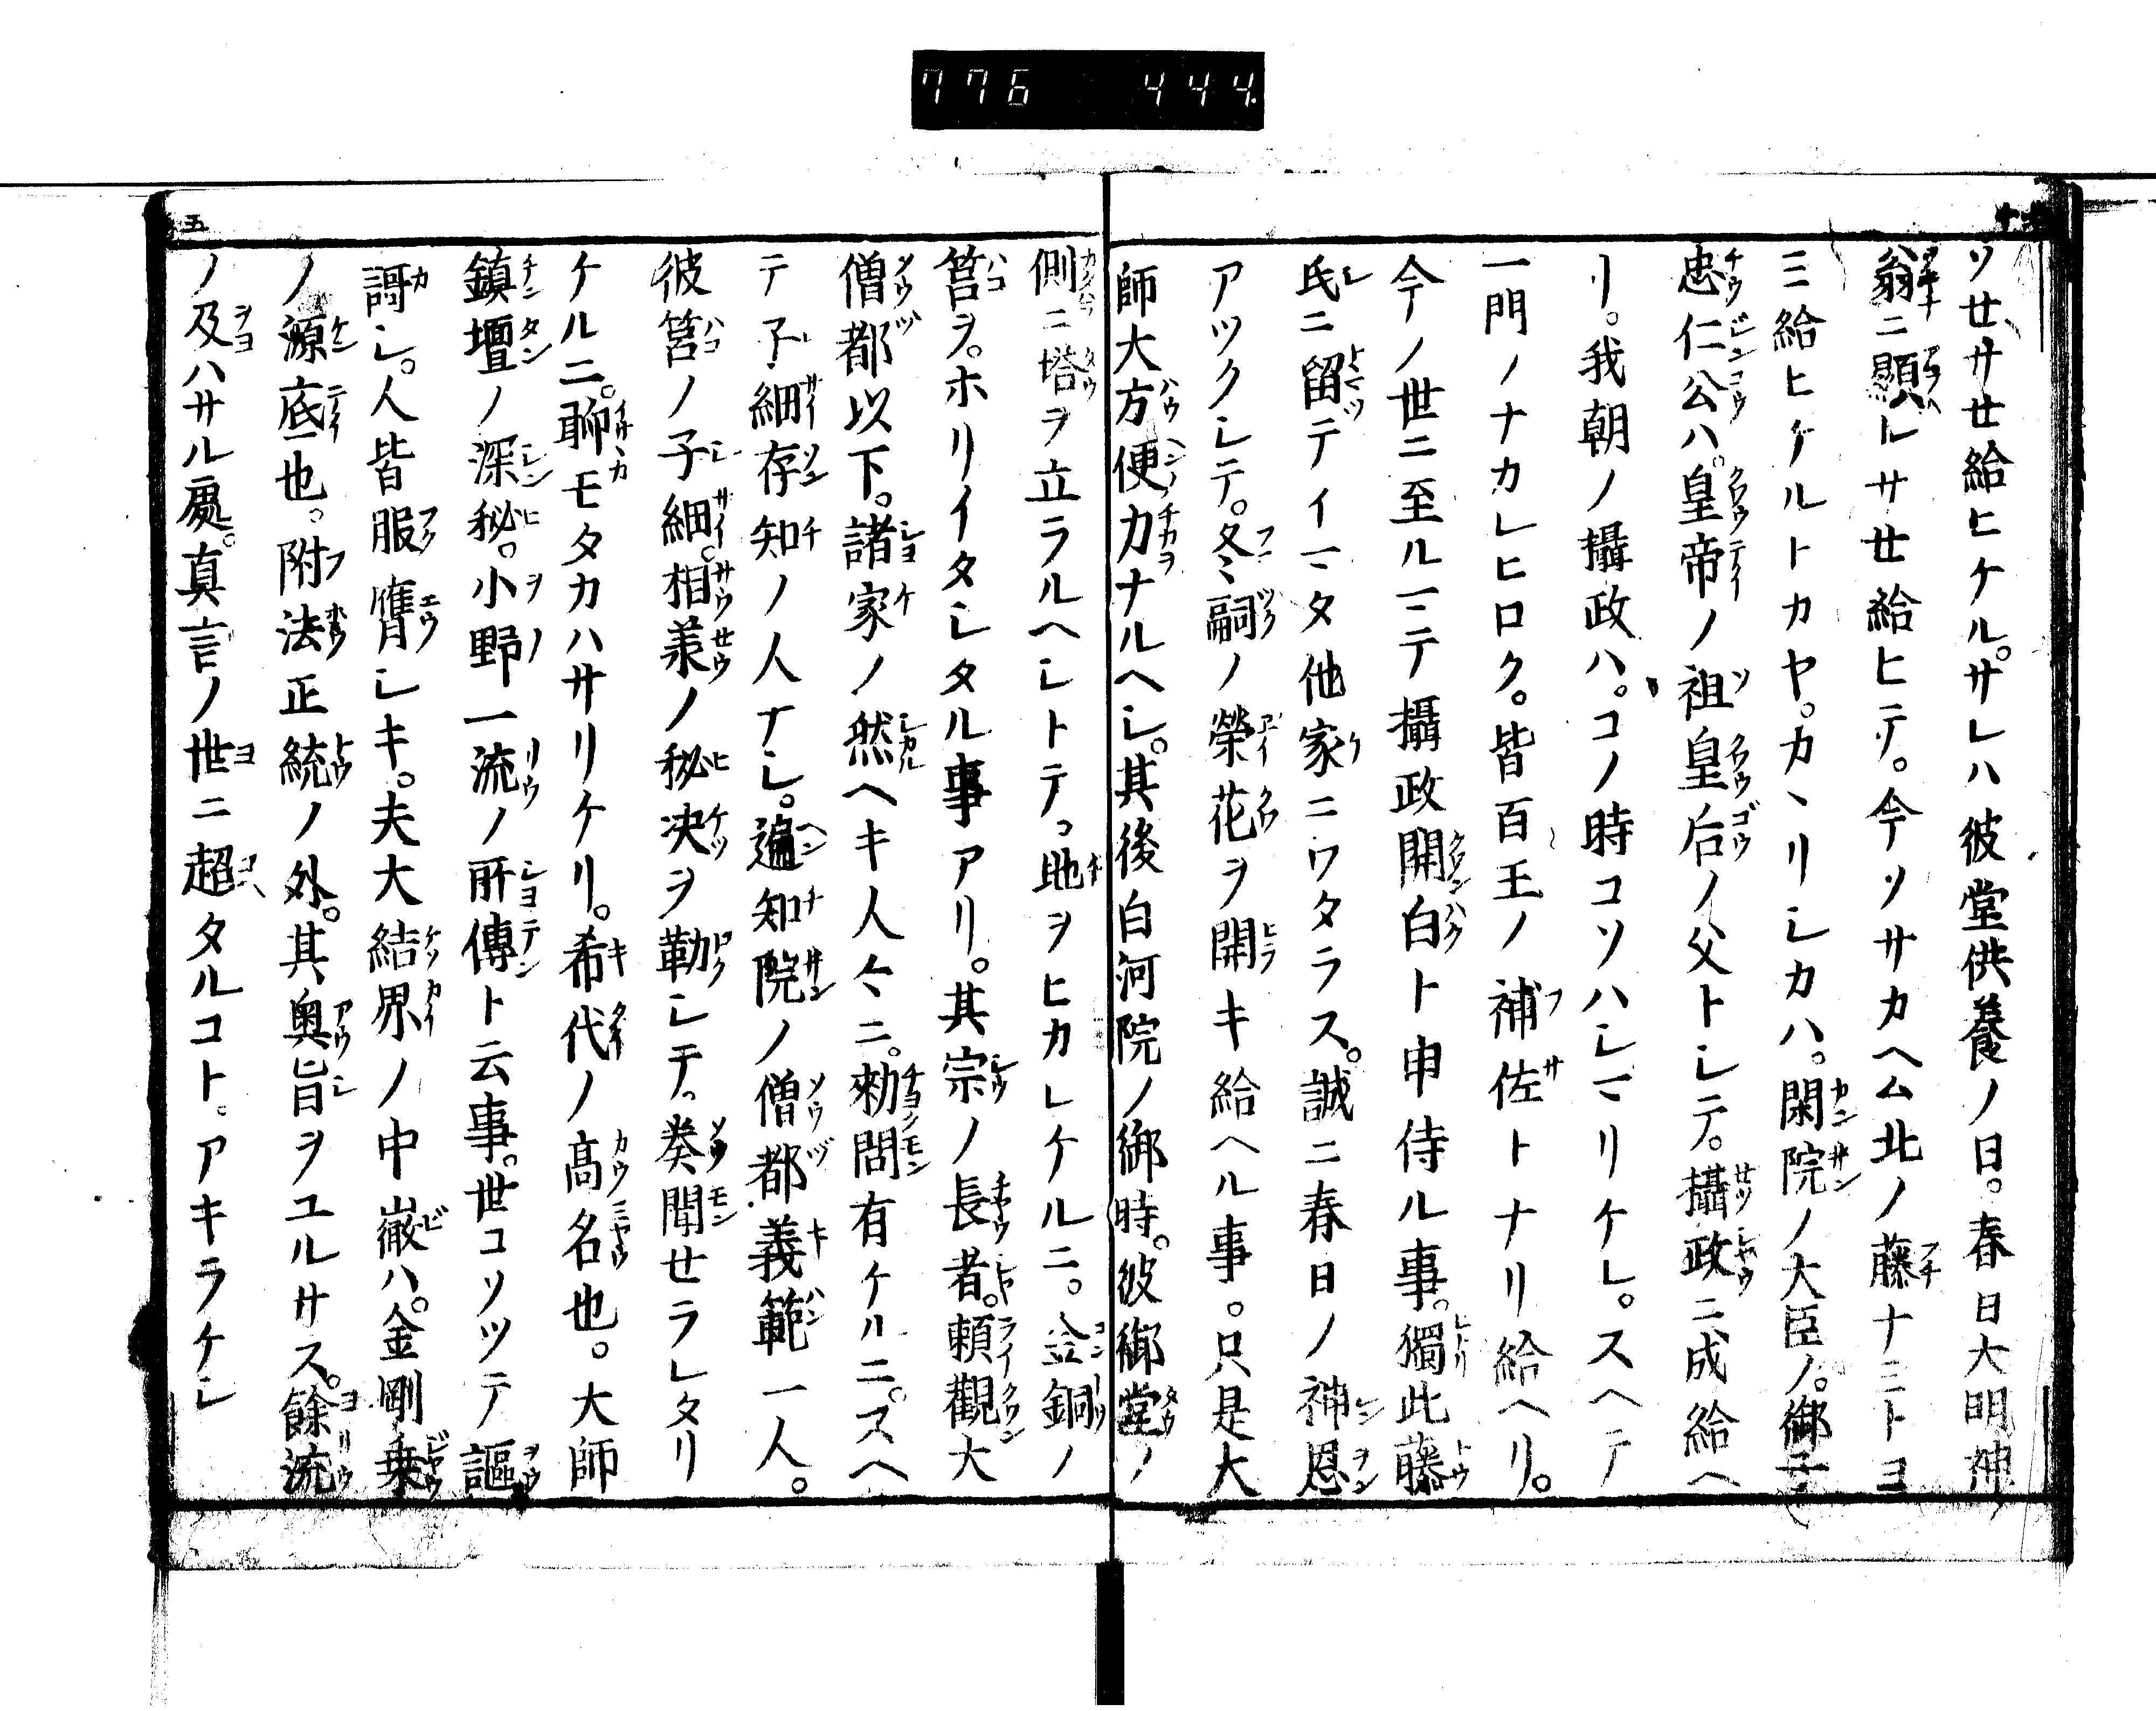 776 444
ツせサせ給ヒケル。サレハ彼堂供養ノ日。春日大明神
翁ニ顯レサせ給ヒテ。今ソサカヘム北ノ藤ナミトヨ
ミ給ヒケルトカヤ。カヽリシカハ。閑院ノ大臣ノ。御子
忠仁公ハ。皇帝ノ祖皇后ノ父トシテ。攝政ニ成給ヘ
リ。我朝ノ攝政ハ。コノ時コソハシマリケレ。スヘテ
一門ノナカレヒロク。皆百王ノ補佐トナリ給ヘリ。
今ノ世ニ至ルマテ攝政開白ト申侍ル事。獨此藤
氏ニ留テイマタ他家ニワタラス。誠ニ春日ノ神恩
アツクシテ。冬嗣ノ榮花ヲ開キ給ヘル事。只是大
師大方便力ナルヘシ。其後白河院ノ御時。彼御堂ノ
側ニ塔ヲ立ラルヘシトテ。地ヲヒカレケルニ。金銅ノ
筥ヲ。ホリイタシタル事アリ。其宗ノ長者。頼觀大
僧都以下。諸家ノ然ヘキ人々ニ。勅問有ケルニ。スヘ
テ子細存知ノ人ナシ。遍知院ノ僧都義範一人。
彼筥ノ子細。相兼ノ秘决ヲ勒シテ。奏聞せラレタリ
ケルニ。聊モタカハサリケリ。希代ノ髙名也。大師
鎮壇ノ深秘。小野一流ノ所傳ト云事。世コソツテ謳
謌シ。人皆服膺シキ。夫大結界ノ中巌ハ。金剛乗
ノ源底也。附法正統ノ外。其奥旨ヲユルサス。餘流
ノ及ハサル處。真言ノ世ニ超タルコト。アキラケシ
五